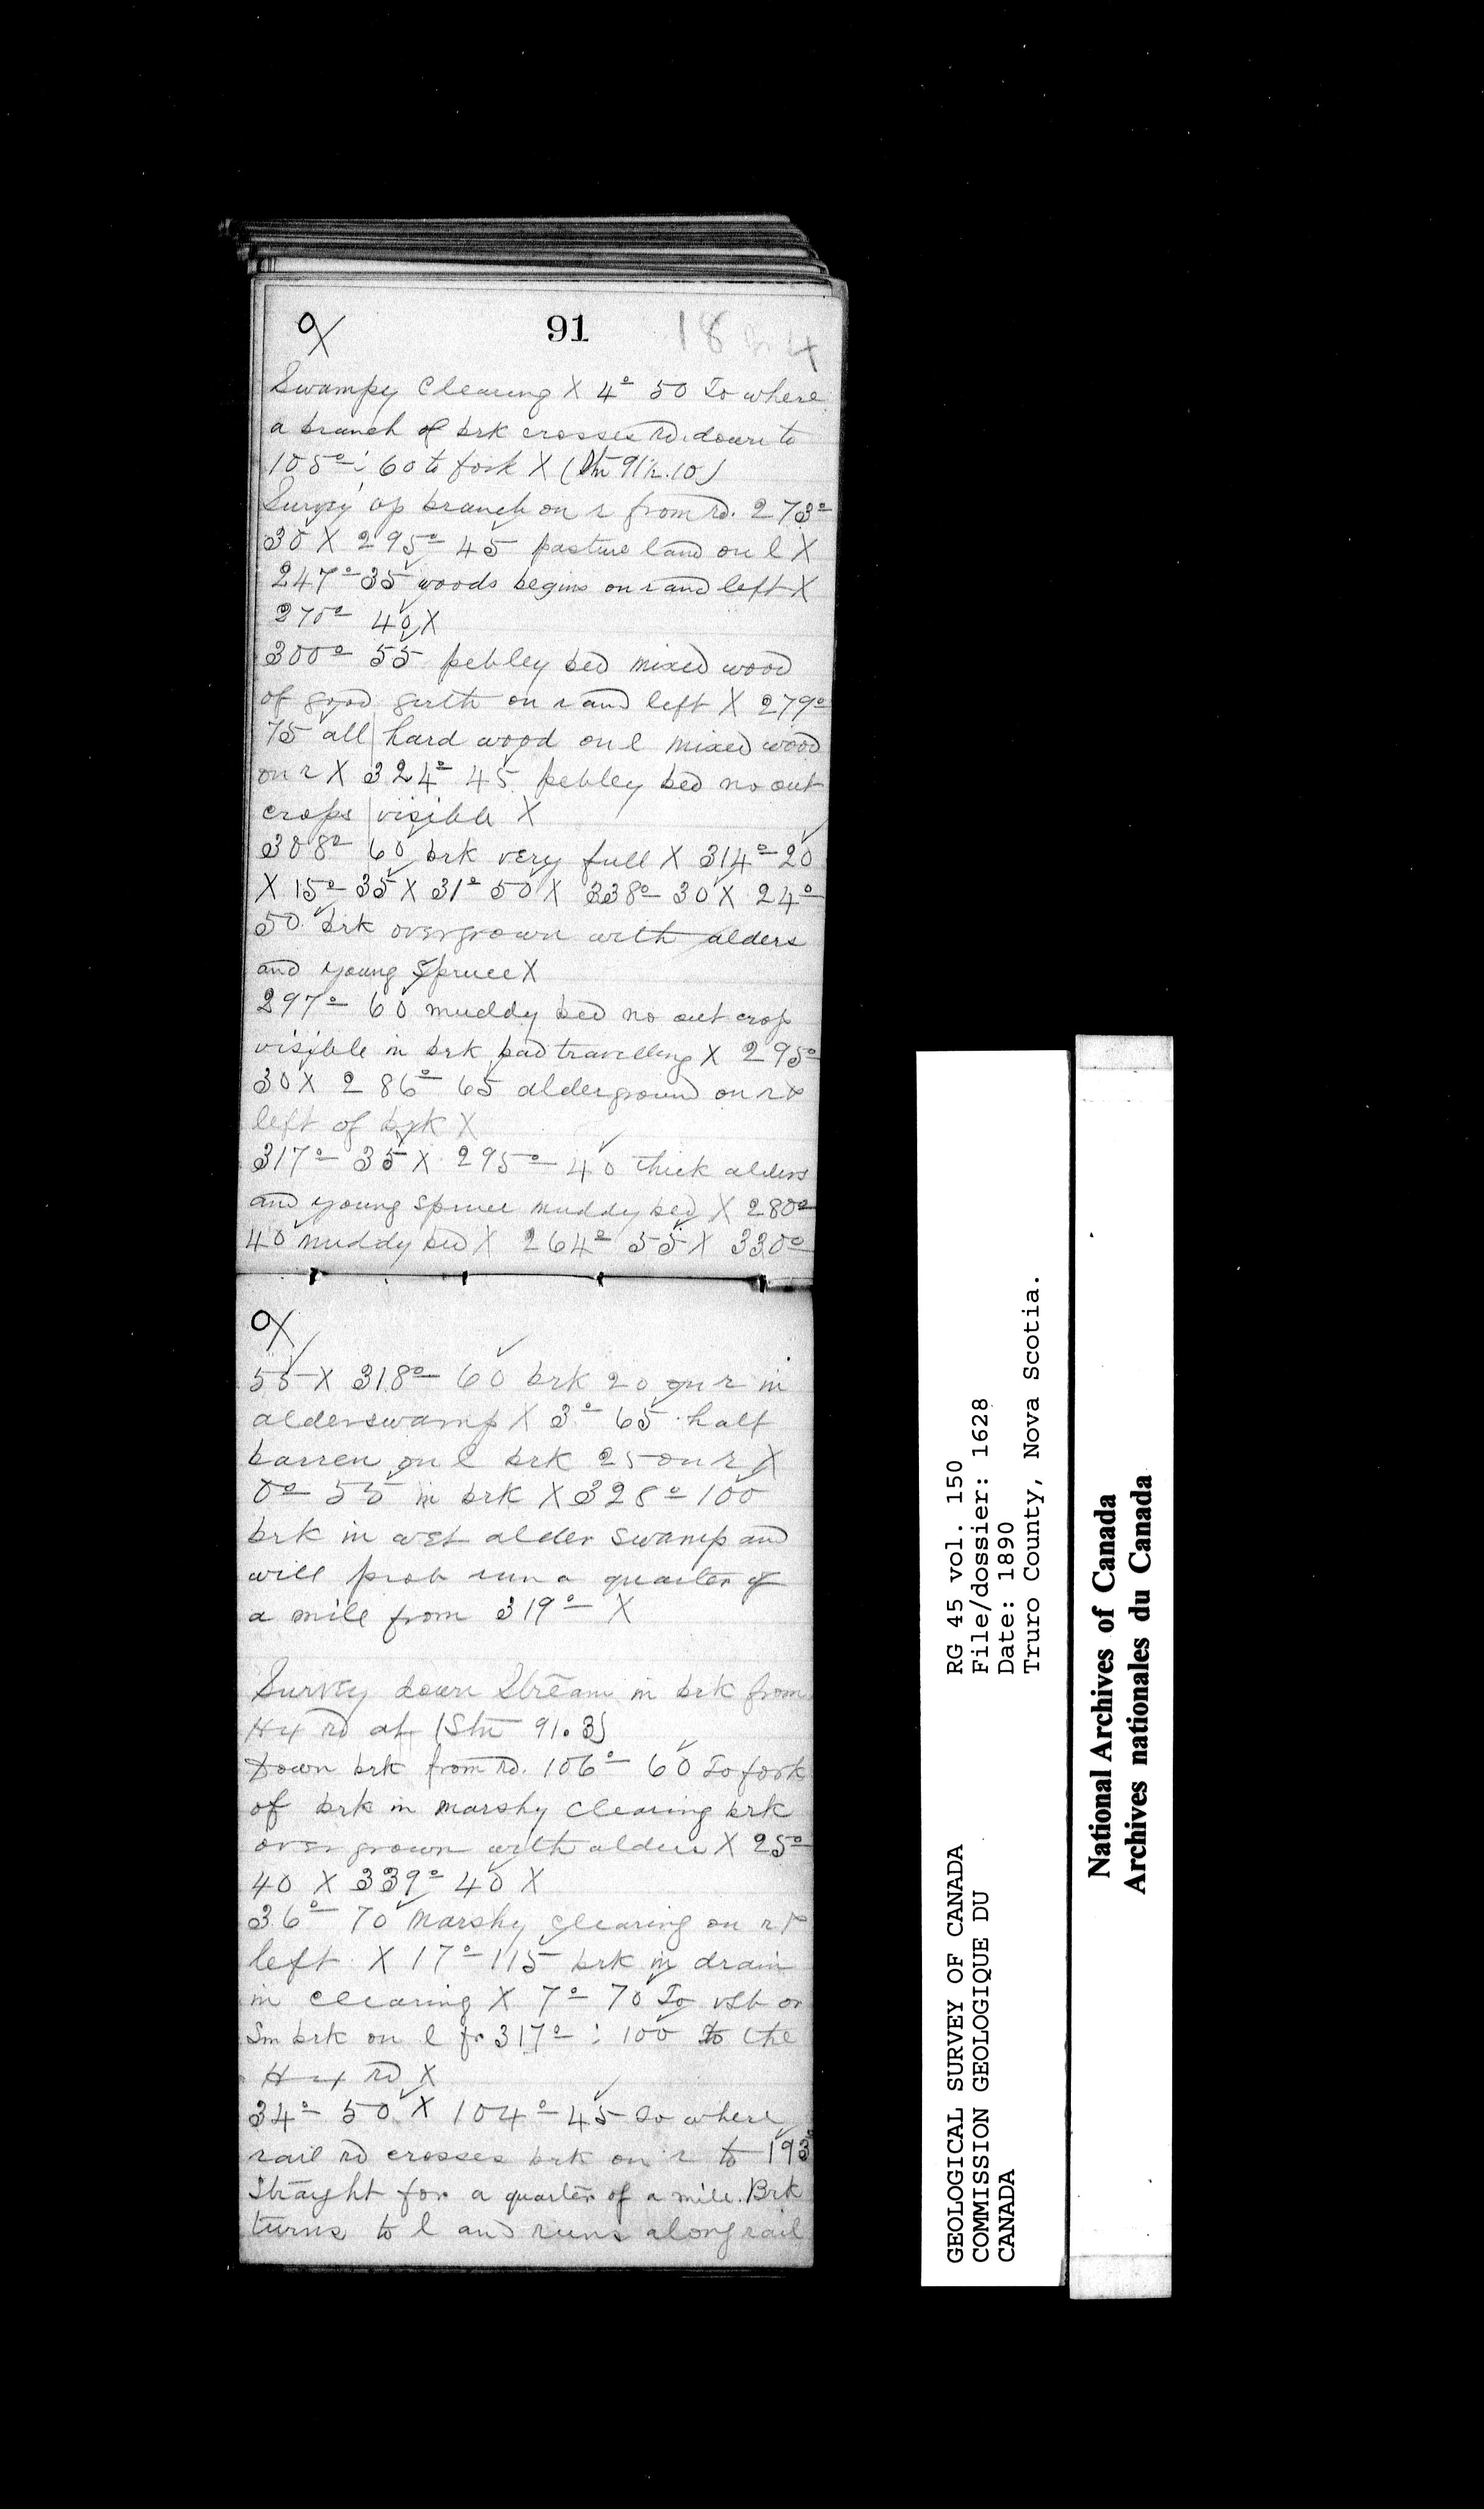 91
Swampy Clearing X 4° 50 To where
a branch of brk crosses rd. down to
105° : 60 to fork X (Stn 91½.10)
Survey up branch on r from rd. 273°
30 X 295° 45 pasture land on l X
247° 35 woods begins on r and left X
270° 40 X
300° 55 pebley bed mixed wood
of good girth on r and left X 279°
75 all hard wood on l mixed wood
on r X 324° 45 pebley bed no out
crops visible X
308° 60 brk very full X 314° 20
X 15° 35 X 31° 50 X 338° 30 X 24°
50. brk overgrown with alders
and young Spruce X
297° 60 muddy bed no out crop
visible in brk bad travelling X 295°
30 X 286° 65 alderground on r &
left of brk X
317° 35 X 295° 40 thick alders
and young spruce muddy bed X 280°
40 muddy bed X 264° 55 X 330°
55 X 318° 60 brk 20 on r in
alderswamp X 3° 65 half
barren on l brk 25 on r X
0° 55 in brk X 328° 100
brk in wet alder swamp and
will prob run a quarter of
a mile from 319° X
Survey down Stream in brk from
rd at (Stn 91.3)
Down brk from rd. 106° 60 To fork
of brk in marshy clearing brk
over grown with alders X 25°
40 X 339° 40 X
36° 70 marshy clearing on r &
left X 17° 115 brk in drain
in clearing X 7° 70 To or
Sm brk on l fr 317° : 100 to the
rd X
34° 50 X 104° 45 to where
rail rd crosses brk on r to 193°
Straight for a quarter of a mile. Brk
turns to l and runs along rail
GEOLOGICAL SURVEY OF CANADA
COMMISSION GEOLOGIQUE DU
CANADA
RG 45 vol. 150
File/dossier: 1628
Date: 1890
Truro County, Nova Scotia.
National Archives of Canada
Archives nationales du Canada